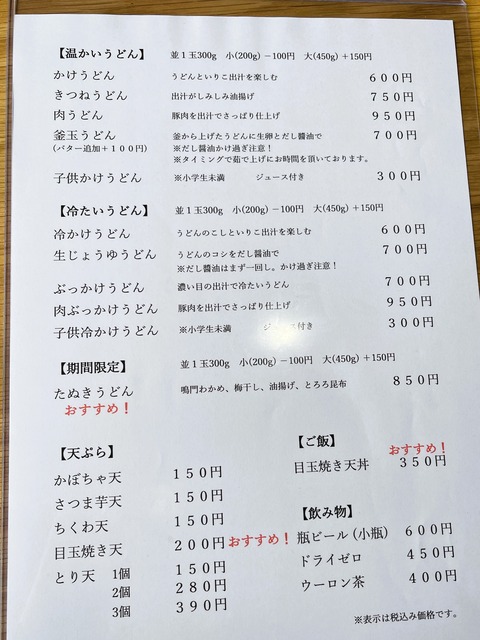 【温かいうどん】 並1玉300g 小(200g)－100円 大(450g)＋150円
かけうどん うどんといりこ出汁を楽しむ 600円
きつねうどん 出汁がしみしみ油揚げ 750円
肉うどん 豚肉を出汁でさっぱり仕上げ 950円
釜玉うどん 釜から上げたうどんに生卵とだし醤油で 700円
(バター追加＋100円) ※だし醤油かけ過ぎ注意！
※タイミングで茹で上げにお時間を頂いております。
子供かけうどん ※小学生未満 ジュース付き 300円
【冷たいうどん】 並1玉300g 小(200g)－100円 大(450g)＋150円
冷かけうどん うどんのこしといりこ出汁を楽しむ 600円
生じょうゆうどん うどんのコシをだし醤油で 700円
※だし醤油はまず一回し。かけ過ぎ注意！
ぶっかけうどん 濃い目の出汁で冷たいうどん 700円
肉ぶっかけうどん 豚肉を出汁でさっぱり仕上げ 950円
子供冷かけうどん ※小学生未満 ジュース付き 300円
【期間限定】 並1玉300g 小(200g)－100円 大(450g)＋150円
たぬきうどん 鳴門わかめ、梅干し、油揚げ、とろろ昆布 850円
おすすめ！
【天ぷら】
かぼちゃ天 150円
さつま芋天 150円
ちくわ天 150円
目玉焼き天 200円 おすすめ！
とり天 1個 150円
2個 280円
3個 390円
【ご飯】
おすすめ！
目玉焼き天丼 350円
【飲み物】
瓶ビール(小瓶) 600円
ドライゼロ 450円
ウーロン茶 400円
※表示は税込み価格です。